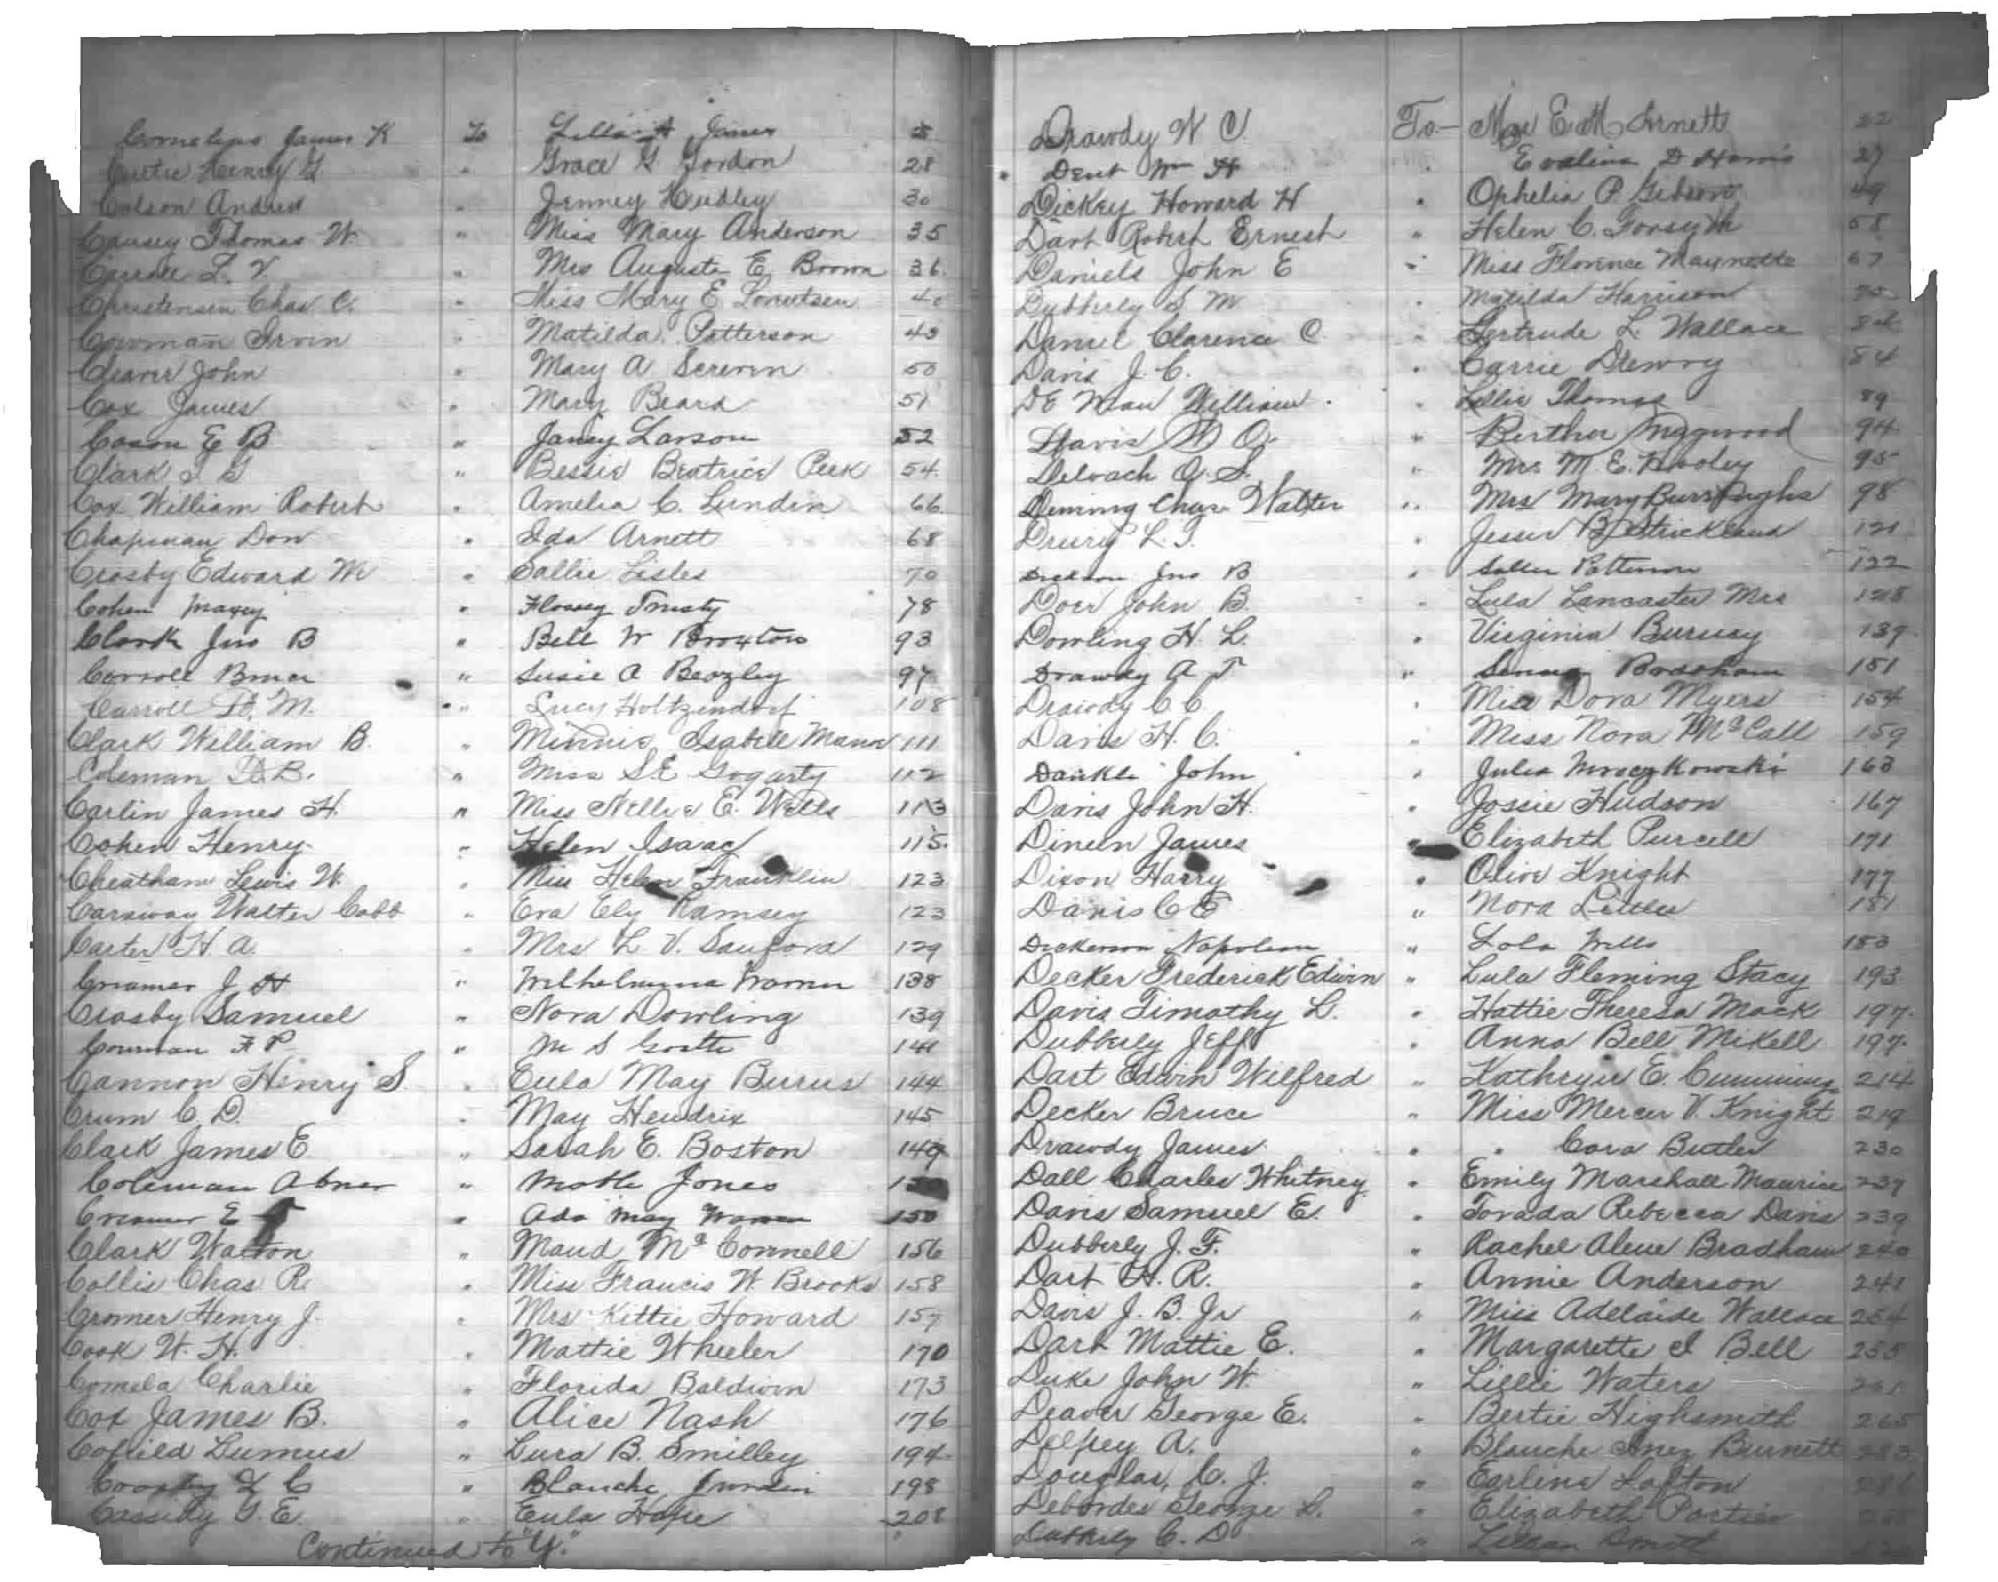 Cornelius James K To Lilla A Jones
Curtis Henry G " Grace G Gordon 28
Colson Andrew " Jenney Hudley 30
Causey Thomas W. " Miss Mary Anderson 35
Carroll L. V. " Mrs Augusta E Brown 36.
Christensen Chas C. " Miss Mary E 40
Cowman Irvin " Matilda Patterson 43
Cleaver John " Mary A Screven 50
Cox James " Mary Beard 51
Cason E B " Janey Larson 52
Clark I G " Bessie Beatrice Peek 54.
Cox William Robert " Amelia C. Lundin 66.
Chapman Don " Ida Arnett 68
Crosby Edward W " Sallie Lisles 70
Cohen Maxey " Flossey Trusty 78
Clark Jno B " Bell W Broxton 93
Carroll " Susie A Beazley 97
Carroll D. M. " Lucy Holtzendorf 108
Clark William B. " Minnie Isabell Mann 111
Coleman D. B. " Miss S. E Gogarty 112
Carlin James H. " Miss Nellie E. Wells 113
Cohen Henry " Helen Isaac 115.
Cheatham Lewis W. " Miss Helen Franklin 123
Caraway Walter Cobb " Eva Ely Ramsey 123
Carter H. A. " Mrs L. V. Sanford 129
Creamer J H " Wilhelmina Warren 138
Crosby Samuel " Nora Dowling 139
Cowman F P " M S 141
Cannon Henry S. " Eula May Burns 144
Crum C. D. " May Hendrix 145
Clark James E " Sarah E. Boston 149
Coleman Abner " Jones
Creamer E " Ada May Warren 150
Clark Walton " Maud McConnell 156
Collis Chas R. " Miss Francis W. Brooks 158
Cromer Henry J. " Mrs Kittie Howard 157
Cook W. H. " Mattie Wheeler 170
Comela Charlie " Florida Baldwin 173
Cox James B. " Alice Nash 176
Cofield Lumus " Lura B. Smilley 194
Crosby L C " Blanche 198
Cassidy G. E. " Eula Hope 208
Continued to "Y."
Drawdy W C To Mrs E M Arnett 22
Dent Wm H " Evalina D Harris 27
Dickey Howard H " Ophelia P Gibson 49
Dart Robert Ernest " Helen C. Forsyth 58
Daniels John E " Miss Florence Maynette 67
Dubberly S M " Matilda Harrison
Daniel Clarence C " Gertrude L. Wallace
Davis J. C. " Carrie Drewry 84
DE Mau William " Lillie Thomas 89
Davis W O. " Bertha Magwood 94
DeLoach O. S. " Mrs. M. E. Hooley 95
Deming Chas Walter " Mrs Mary Burroughs 98
Drury L. T. " Jessie B. Strickland 121
Dickson Jno B " Sallie Patterson 122
Doer John B. " Lula Lancaster Mrs 128
Dowling H. L. " Virginia Burney 139
Drawdy A T " Bradham 151
Drawdy C C. " Miss Dora Myers 154
Davis H. C. " Miss Nora McCall 159
Dankle John " Julia Mroczkowski 163
Davis John H. " Jossie Hudson 167
Dineen James " Elizabeth Purcell 171
Dixon Harry " Olive Knight 177
Davis C E " Nora Little 181
Dickerson Napoleon " Lola Wells 183
Decker Frederick Edwin " Lula Fleming Stacy 193
Davis Timothy L. " Hattie Theresa Mack 197.
Dubberly Jeff " Anna Bell Mikell 197.
Dart Edwin Wilfred " Kathryn E. Cummings 214
Decker Bruce " Miss Mercer V. Knight 219
Drawdy James " " Cora Butler 230
Dall Charles Whitney " Emily Marshall Maurice 237
Davis Samuel E. " Torada Rebecca Davis 239
Dubberly J. F. " Rachel Alene Bradham 240
Dart H. R. " Annie Anderson 241
Davis J. B. Jr " Miss Adelaide Wallace 254
Dart Mattie E. " Margarette I Bell 255
Duke John W. " Lillie Waters 261
Deaver George E. " Bertie Highsmith 265
Delpey A. " Blanche Inez Burnett 283
Douglas, C. J. " Earline Lofton
Debordes George L. " Elizabeth
Dubberly C. D " Lillian